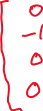 0
-1
0
0